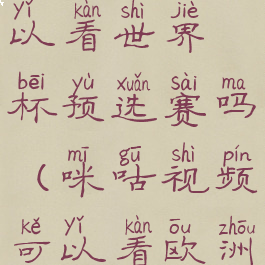 yǐ kàn shì jiè
以看世界
bēi yù xuǎn sài ma
杯预选赛吗
mī gū shì pín
(咪咕视频
kě yǐ kàn ōu zhōu
可以看欧洲